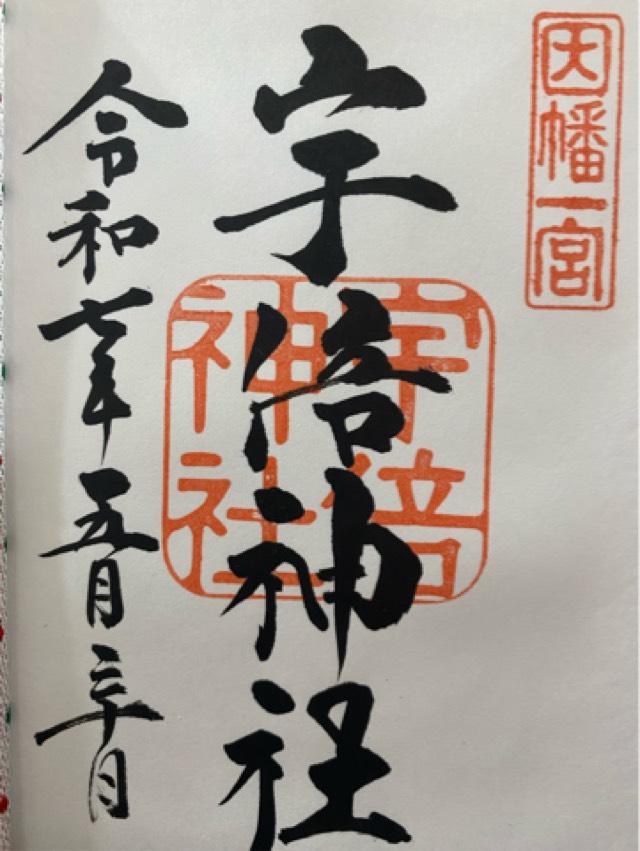 因幡一宮
宇倍神社
宇倍神社
令和七年五月三十日